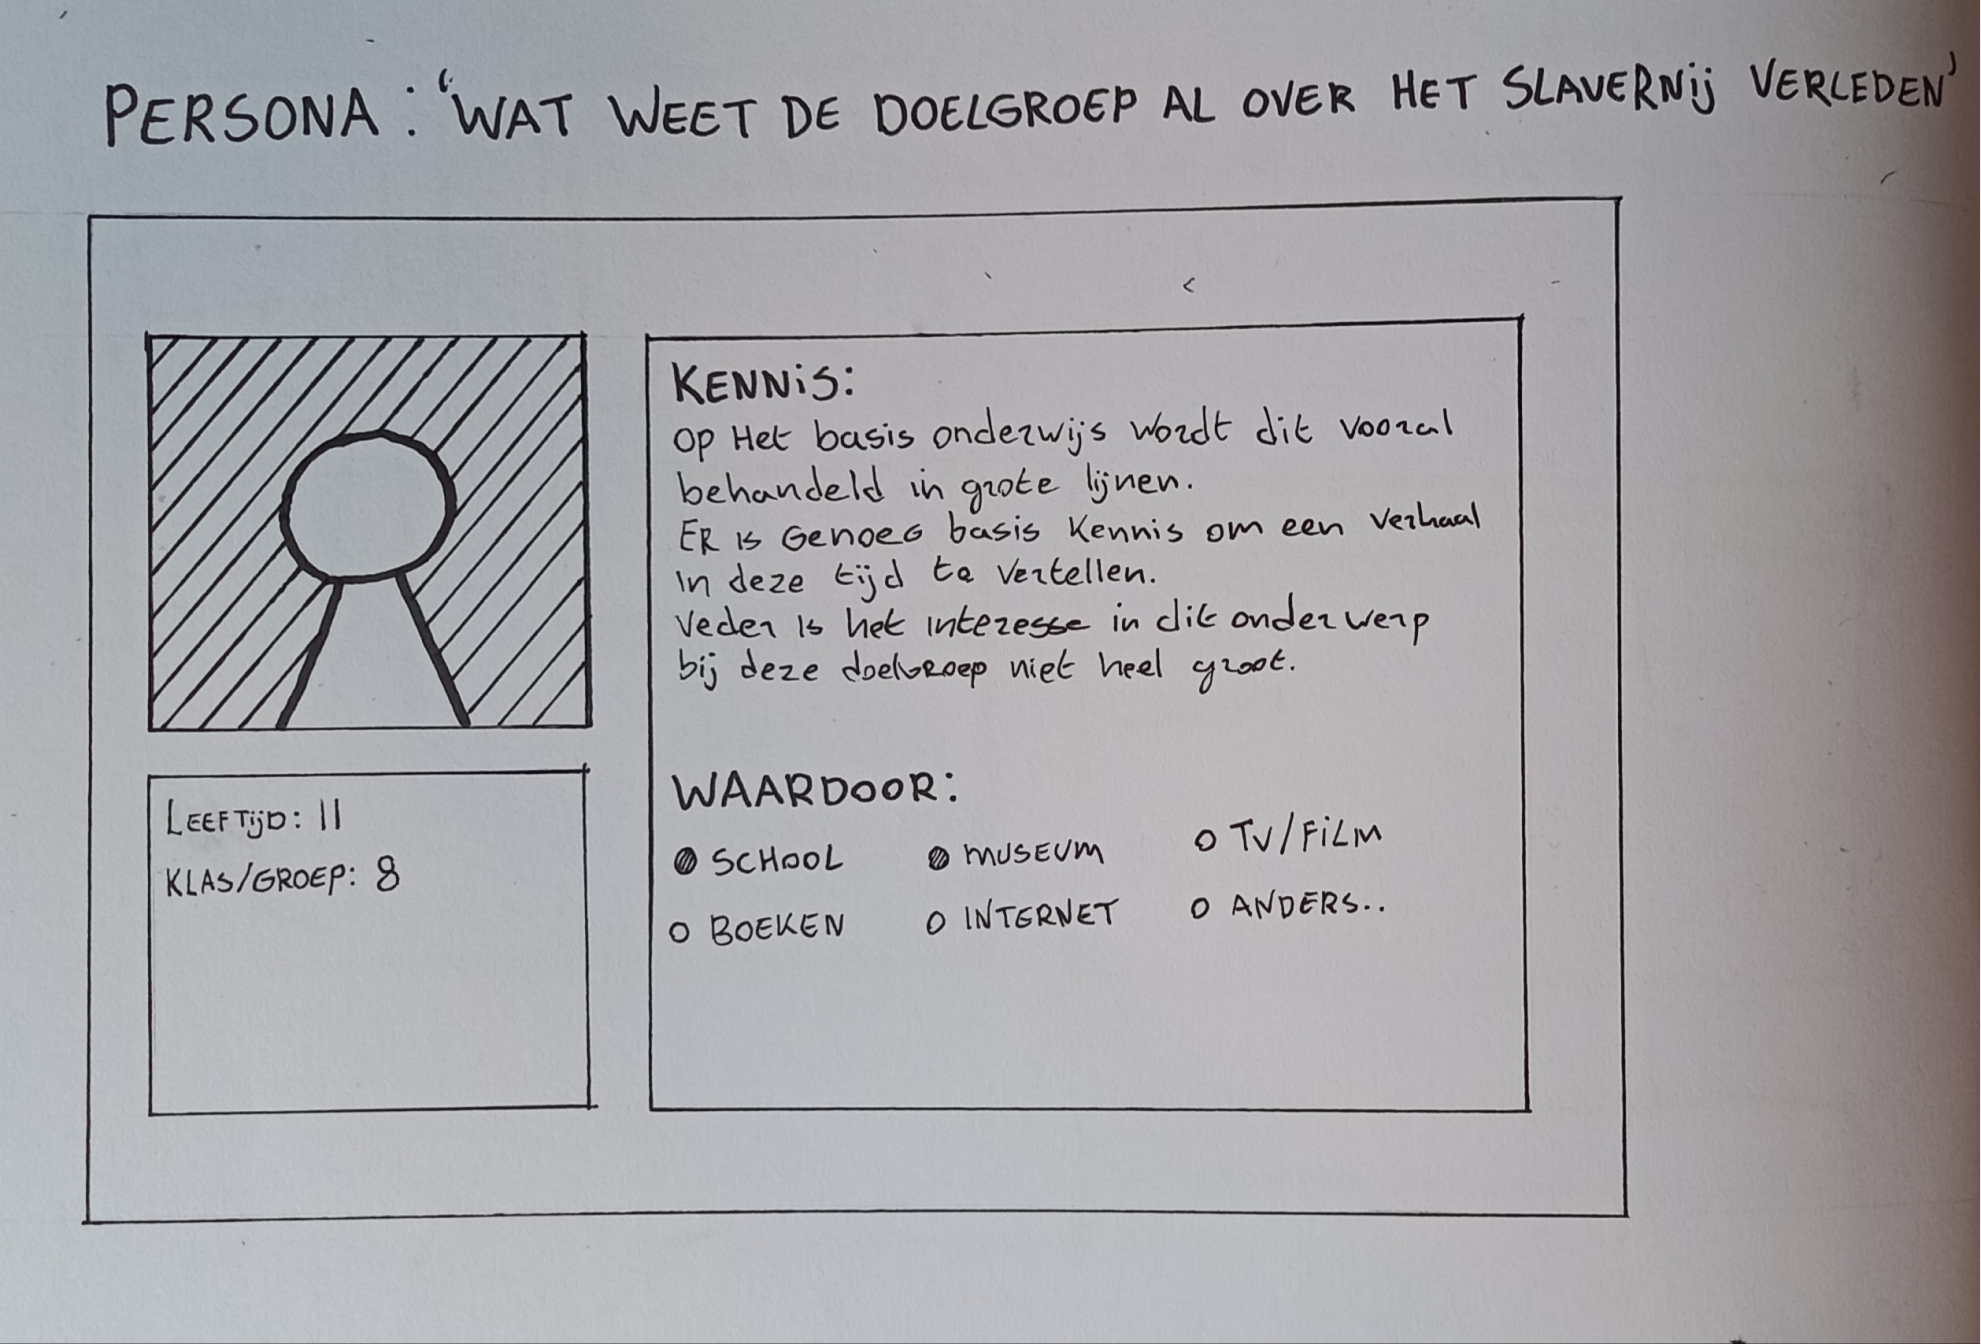 PERSONA: 'WAT WEET DE DOELGROEP AL OVER HET SLAVERNIJ VERLEDEN'
LEEFTIJD: 11
KLAS/GROEP: 8
KENNIS:
OP Het basis onderwijs wordt dit vooral
behandeld in grote lijnen.
ER is Genoeg basis kennis om een verhaal
in deze tijd te vertellen.
Veder is het interesse in dit onderwerp
bij deze doelgroep niet heel groot.
WAARDOOR:
SCHOOL MUSEUM TV/FILM
BOEKEN INTERNET ANDERS..